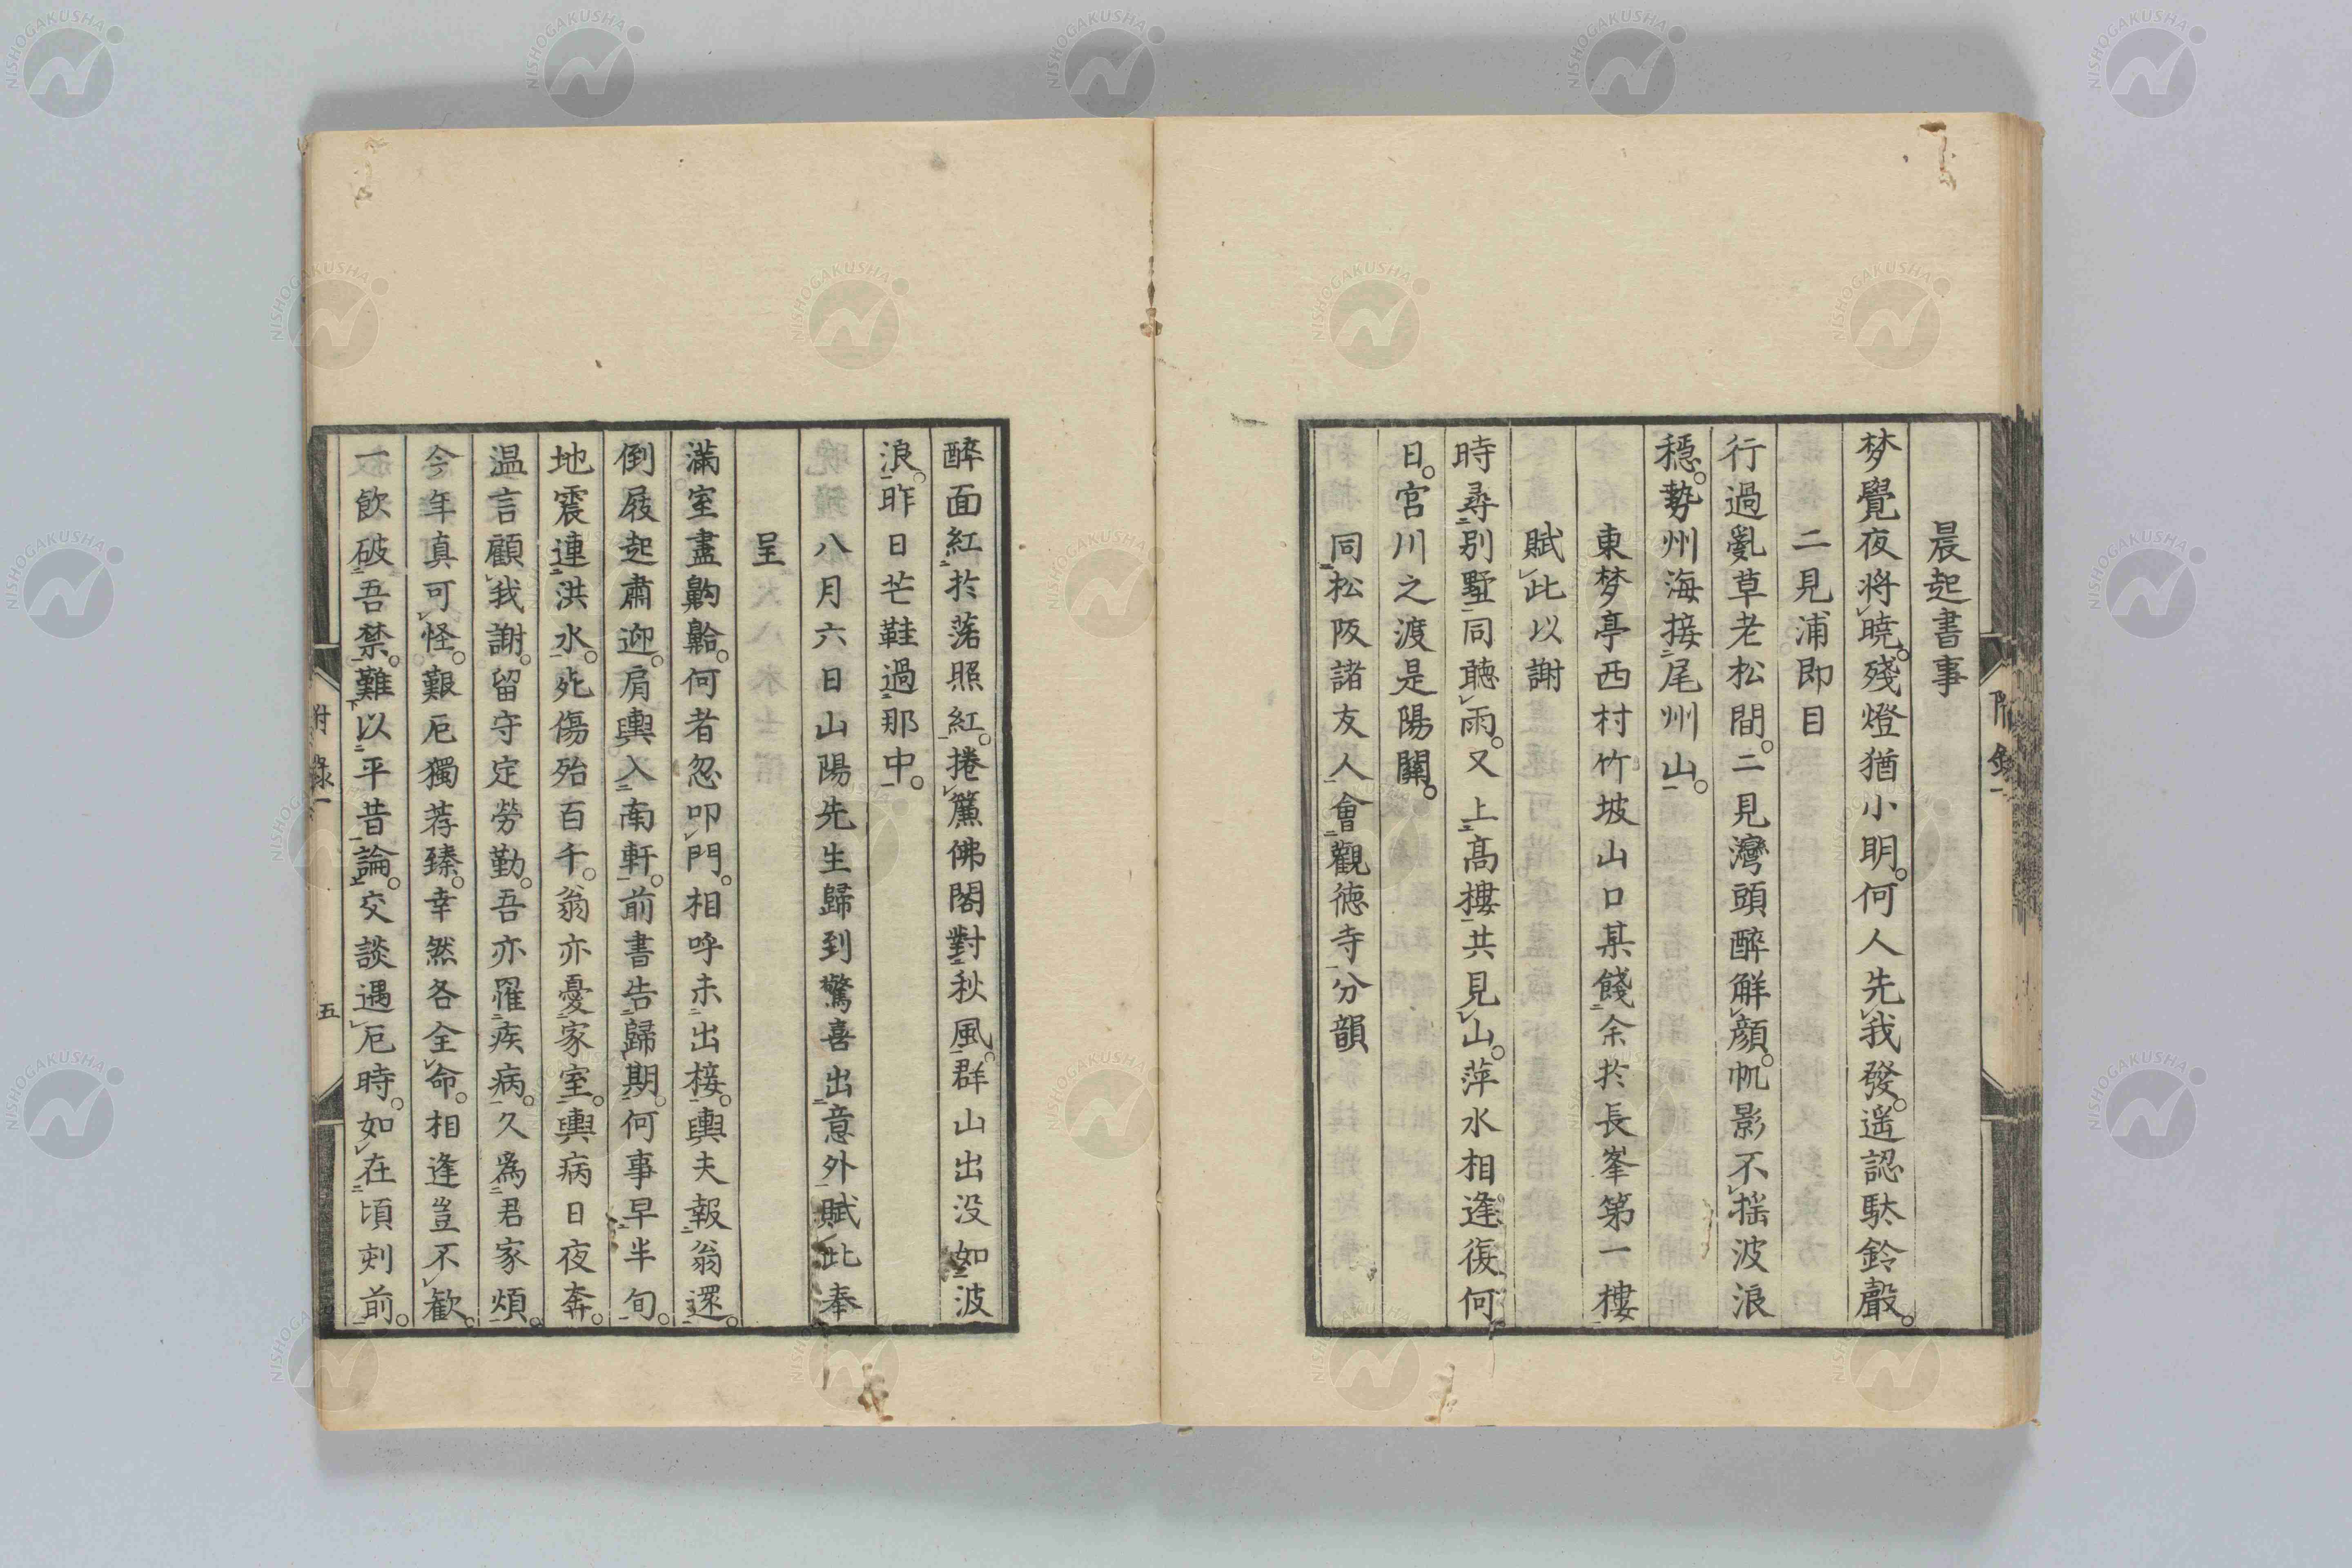 晨起書事
梦覺夜将曉。殘燈猶小明。何人先我發。遥認駄鈴聲。
二見浦即目
行過亂草老松間。二見灣頭醉解顔。帆影不揺波浪
穩。勢州海接尾州山。
東梦亭西村竹坡山口某餞余於長峯第一樓
賦此以謝
時尋別墅同聽雨。又上高樓共見山。萍水相逢復何
日。宮川之渡是陽關。
同松阪諸友人會觀德寺分韻
附錄一
醉面紅於落照紅。捲簾佛閣對秋風。群山出没如波
浪。昨日芒鞋過那中。
八月六日山陽先生歸到驚喜出意外賦此奉
呈
滿室盡齁齁何者忽叩門。相呼未出接。輿夫報翁還。
倒屐起肅迎。肩輿入南軒。前書告歸期。何事早半旬。
地震連洪水。死傷殆百千。翁亦憂家室。輿病日夜奔。
温言顧我謝。留守定勞勤。吾亦罹疾病。久爲君家煩。
今年真可怪。艱厄獨荐臻。幸然各全命。相逢豈不歡。
一飲破吾禁。難以平昔論。交談遇厄時。如在頃刻前。
附錄一
五
NISHOGAKUSHA